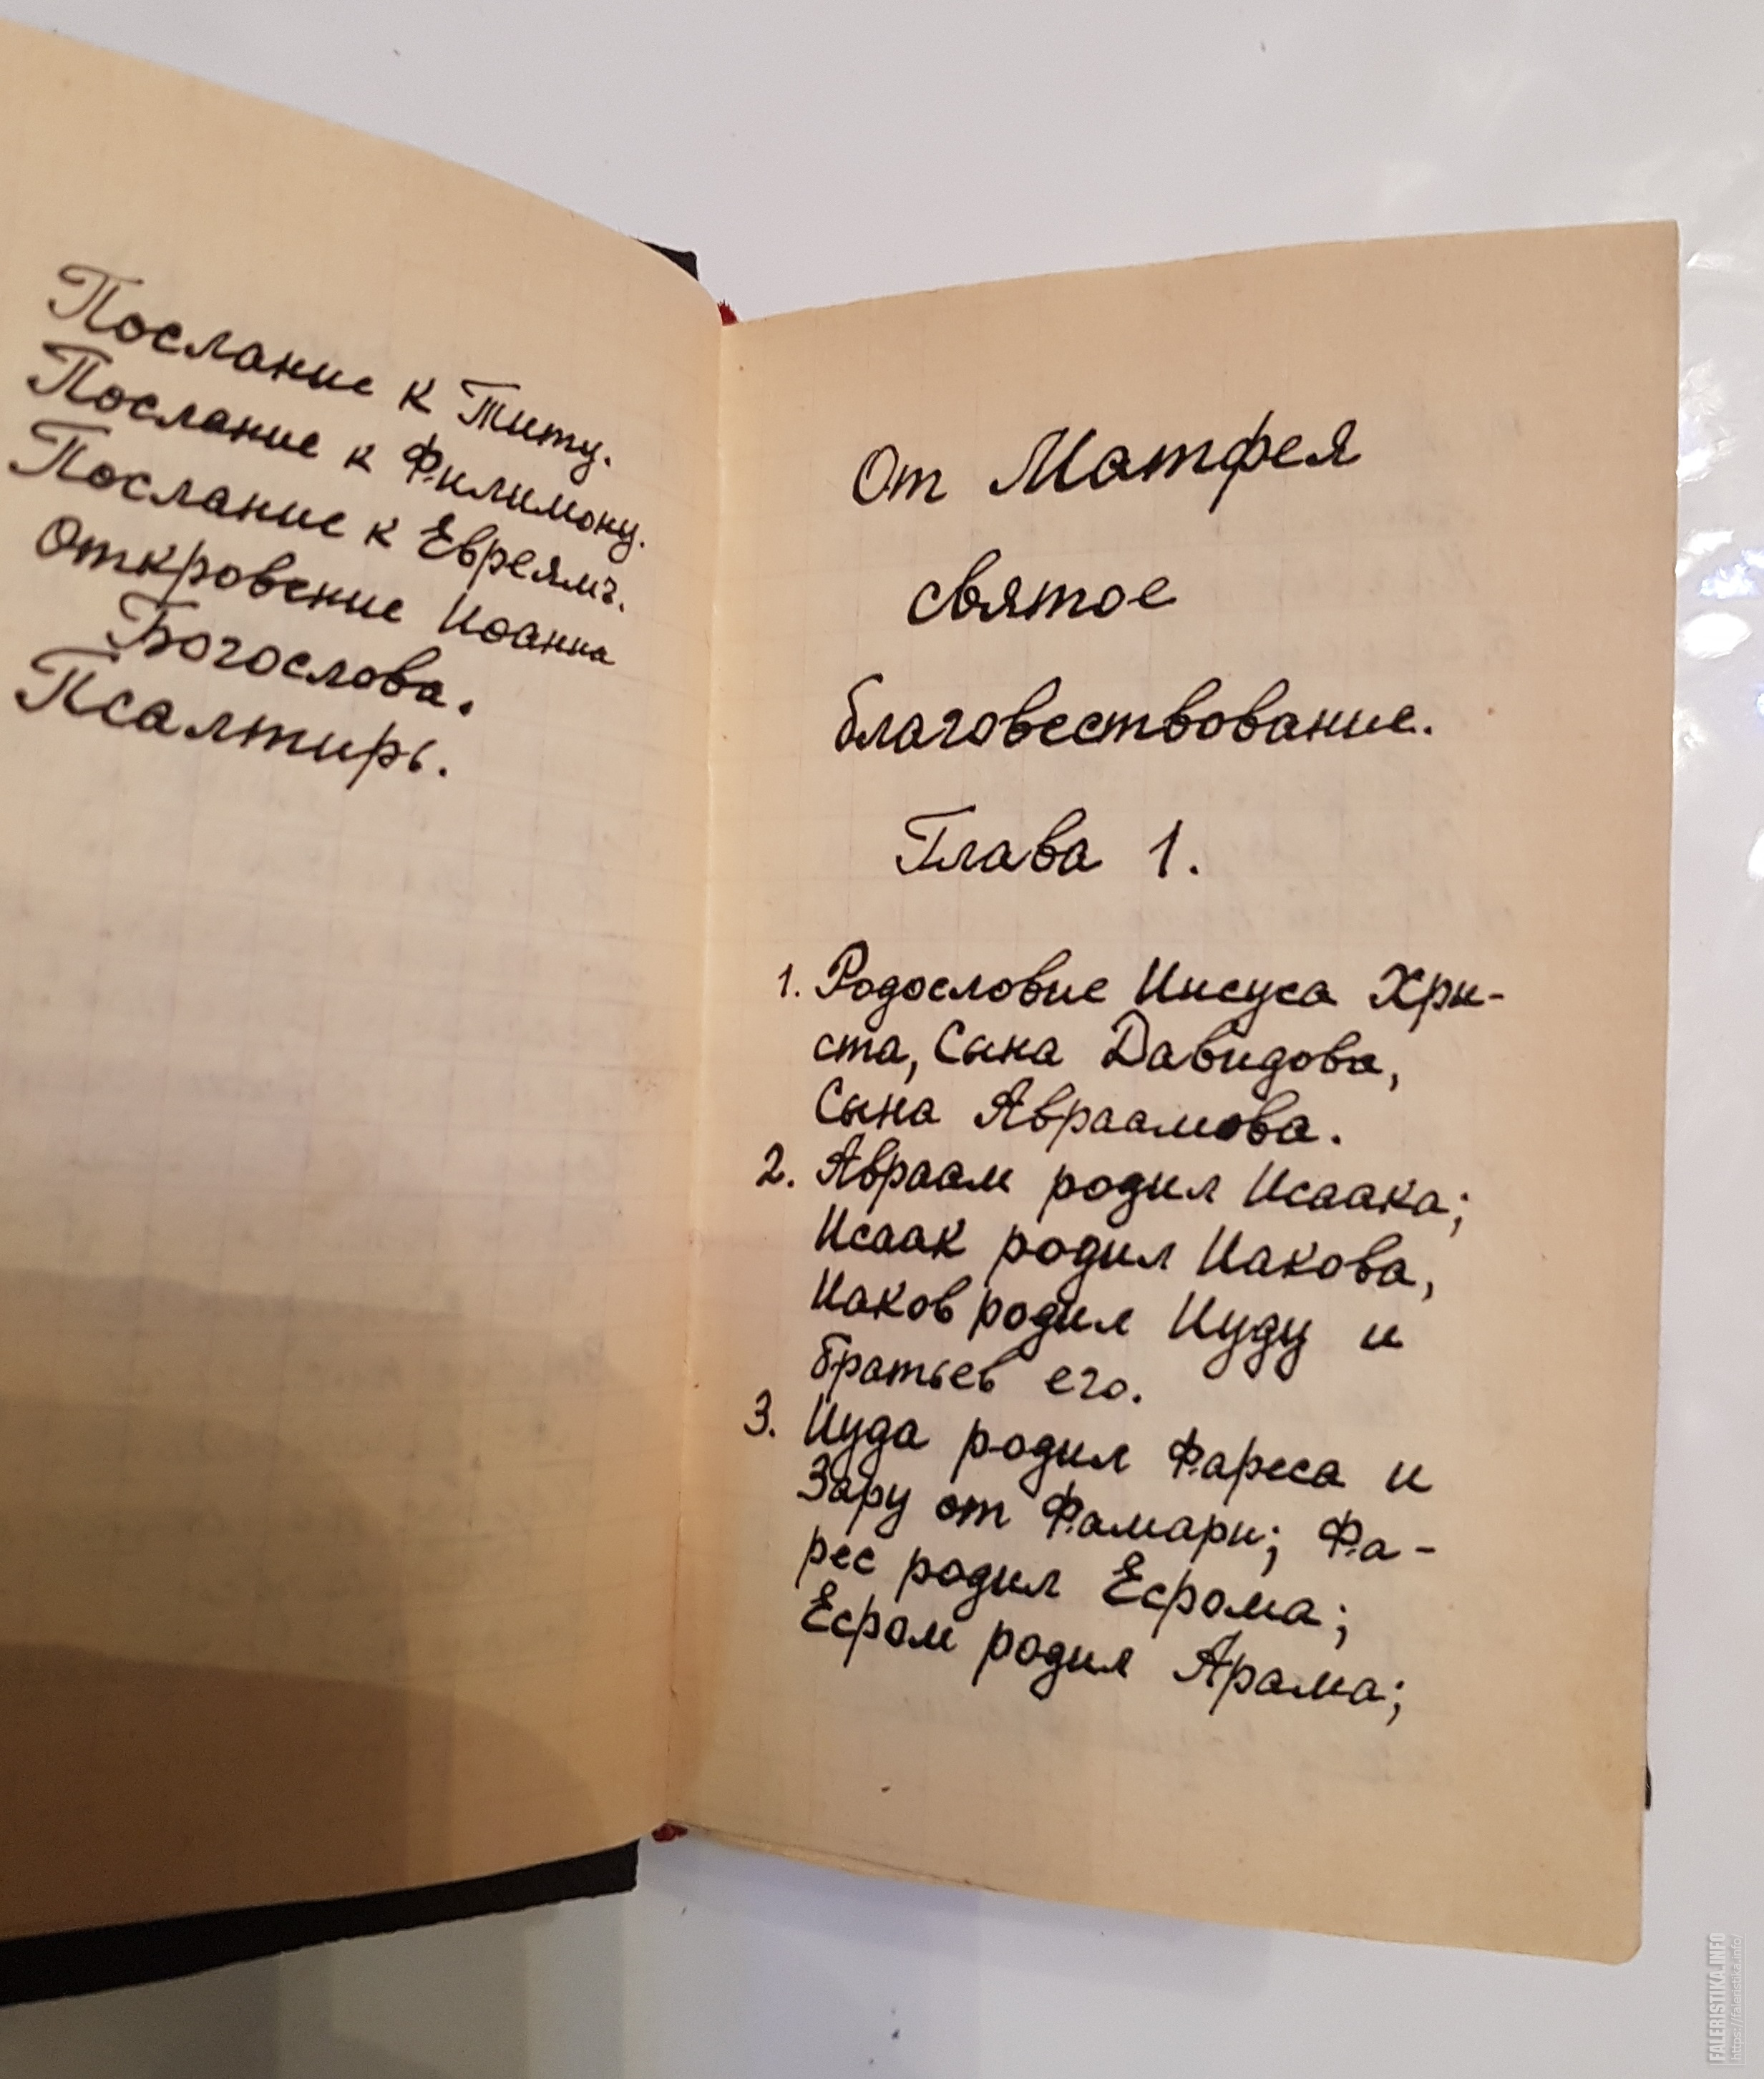 Послание к Титу.
Послание к Филимону.
Послание к Евреямъ.
Откровение Иоанна
Богослова.
Псалтирь.
От Матфея
святое
благовествование.
Глава 1.
1. Родословие Иисуса Хри-
ста, Сына Давидова,
Сына Авраамова.
2. Авраам родил Исаака;
Исаак родил Иакова,
Иаков родил Иуду и
братьев его.
3. Иуда родил Фареса и
Зару от Фамари; Фа-
рес родил Есрома;
Есром родил Арама;
FALERISTIKA.INFO
https://faleristika.info/